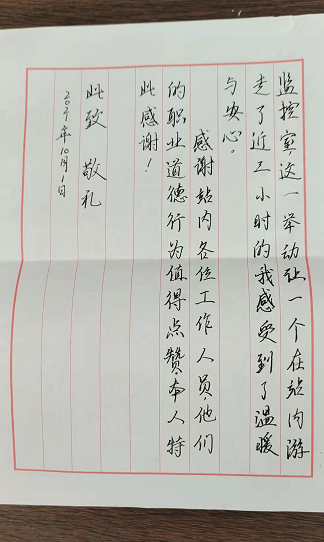 监控室,这一举动让一个在站内游
走了近三小时的我感受到了温暖
与安心。
感谢站内各位工作人员,他们
的职业道德行为值得点赞,本人特
此感谢!
此致 敬礼
10月1日